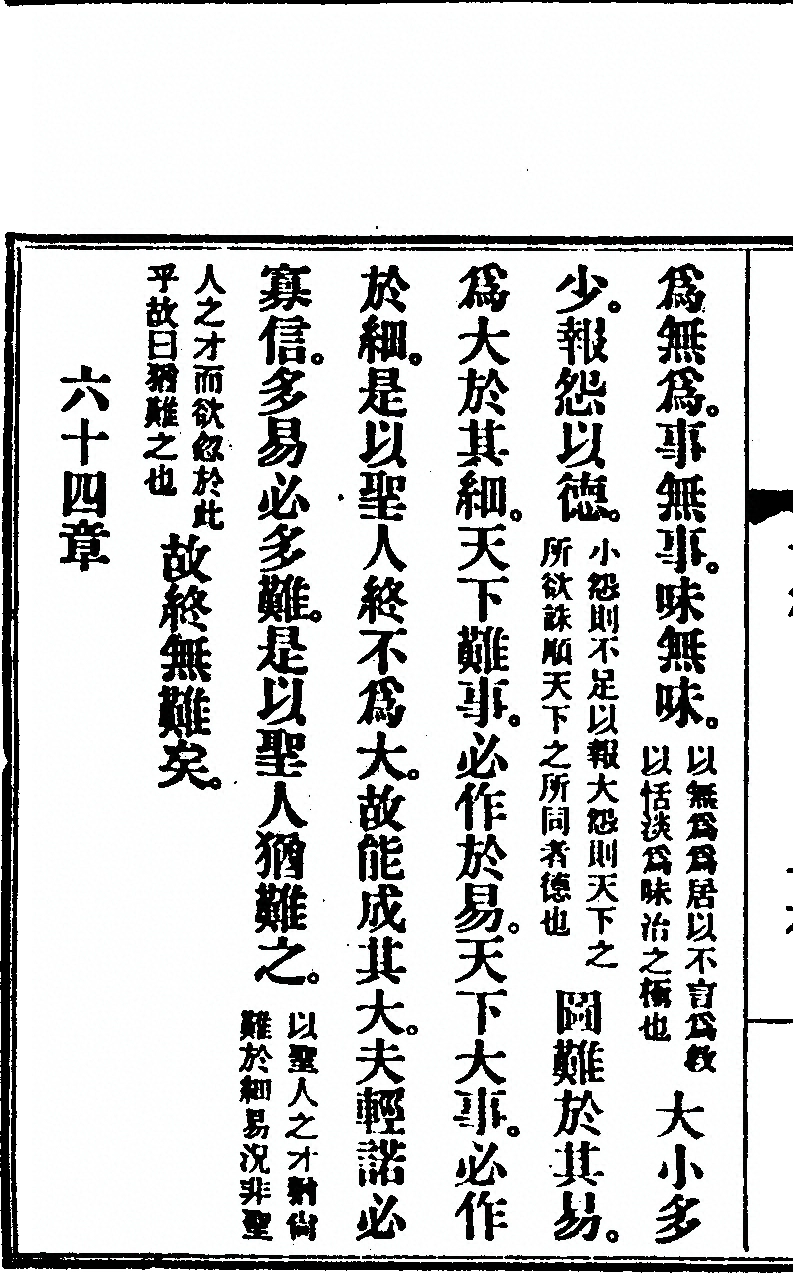 爲無爲。事無事。味無味。以無爲爲居以不言爲教以恬淡爲味治之極也大小多
少。報怨以德。小怨則不足以報大怨則天下之所欲誅順天下之所同者德也圖難於其易。
爲大於其細。天下難事。必作於易。天下大事。必作
於細。是以聖人終不爲大。故能成其大。夫輕諾必
寡信。多易必多難。是以聖人猶難之。以聖人之才猶尙難於細易況非聖
人之才而欲忽於此乎故曰猶難之也故終無難矣。
六十四章